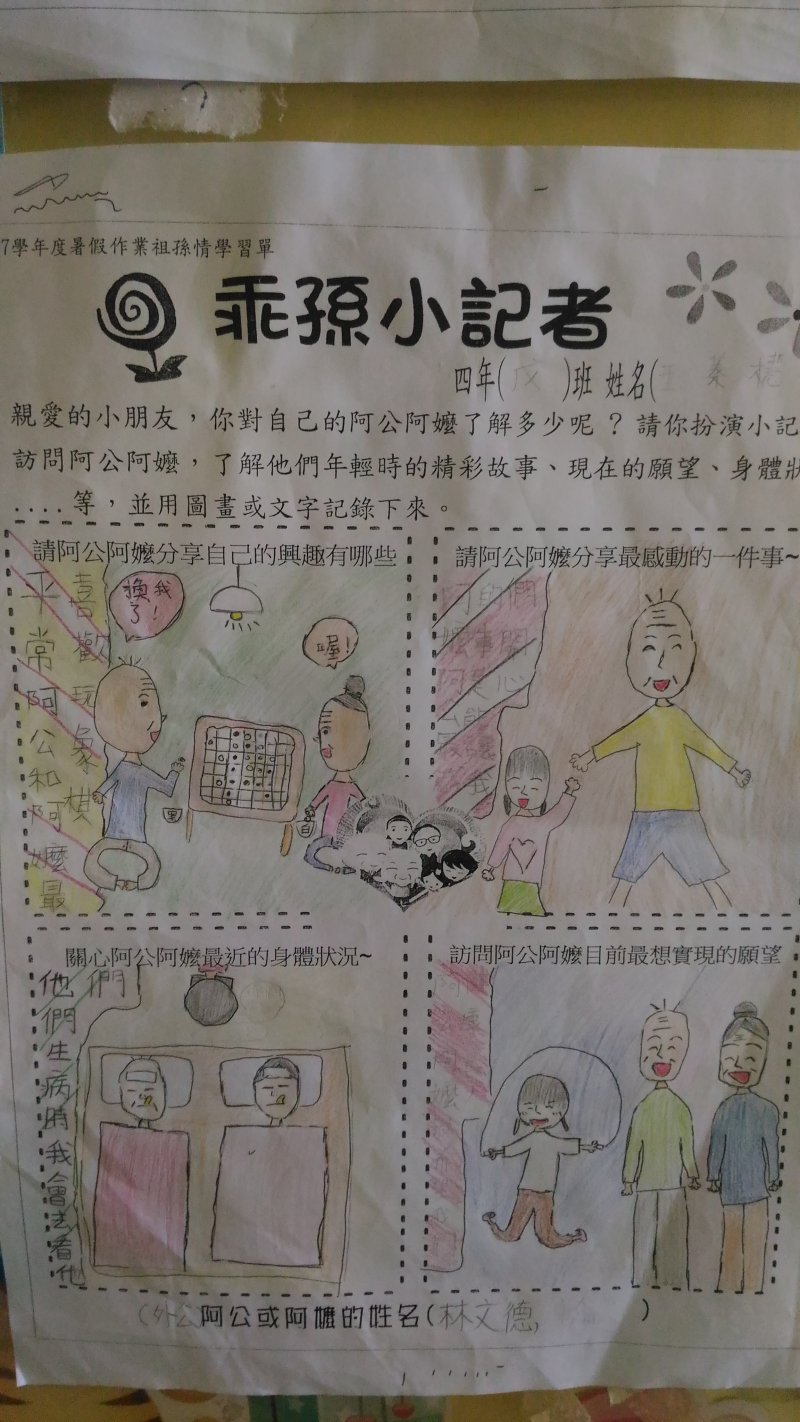 7學年度暑假作業祖孫情學習單
乖孫小記者
四年(戊)班 姓名(王
親愛的小朋友，你對自己的阿公阿嬤了解多少呢？請你扮演小記
訪問阿公阿嬤，了解他們年輕時的精彩故事、現在的願望、身體狀
....等，並用圖畫或文字記錄下來。
請阿公阿嬤分享自己的興趣有哪些
平常阿公和阿嬤最
喜歡玩象棋
換我了！
喔！
黑
白
請阿公阿嬤分享最感動的一件事~
關心阿公阿嬤最近的身體狀況~
他們生病時我會去看他
們
訪問阿公阿嬤目前最想實現的願望
(外公)阿公或阿嬤的姓名(林文德)